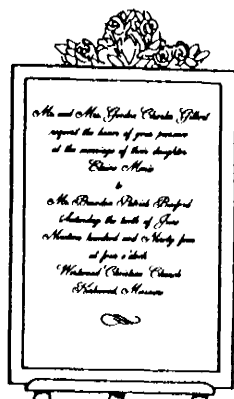 Mr. and Mrs. Gordon Charles Gilbert
request the honor of your presence
at the marriage of their daughter
Elaine Marie
to
Mr. Brandon Patrick
Saturday the tenth of June
Nineteen hundred and Ninety four
at four o'clock
Westwood Christian Church
Missouri